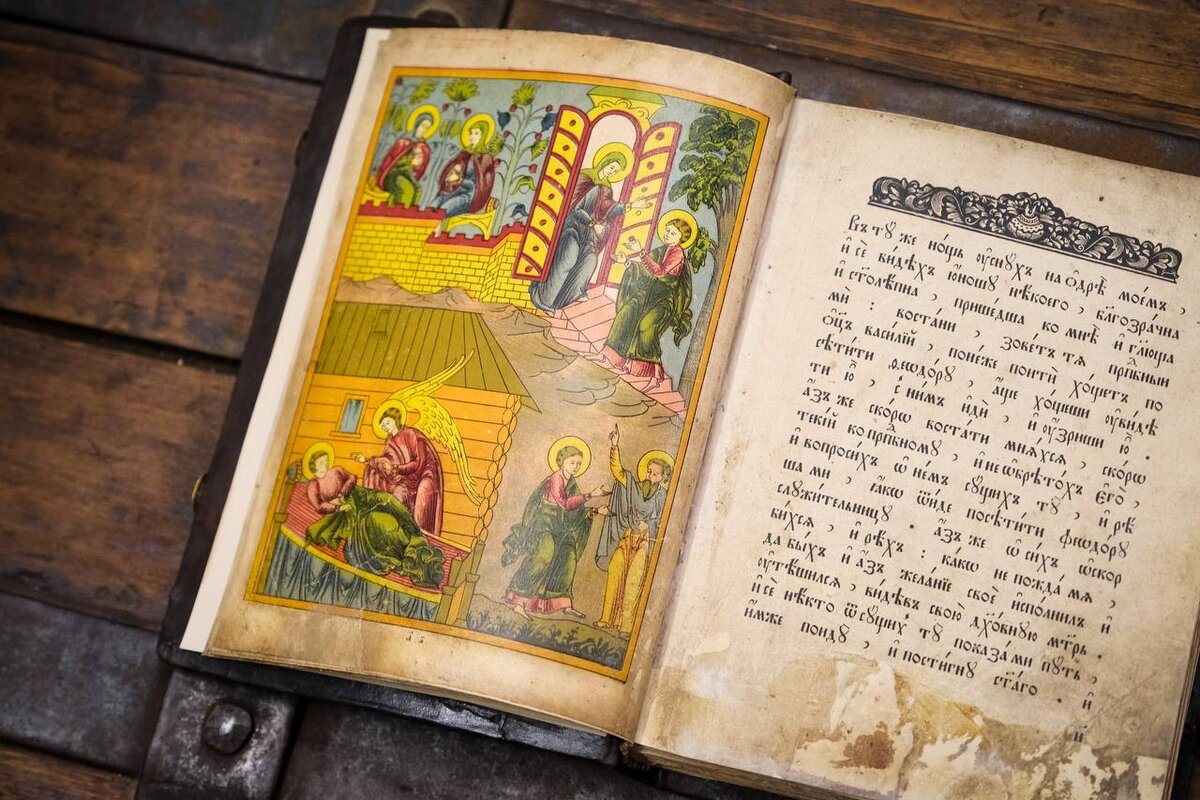 Въ тꙋ же нощь ᲂу҆снꙋхъ на ѻ҆дрѣ̀ мое́мъ ,
и҆ сѐ ви́дѣхъ ю҆́ношꙋ нѣ́коего , бл҃гозра́чна
и҆ столѣ́пна , прише́дша ко мнѣ̀ и҆ гл҃юща
мѝ : воста́ни , зове́тъ тѧ прпⷣбныи
ѻ҆ц҃ъ васи́лїй , поне́же поитѝ хо́щетъ по
сѣти́ти ѳео́дѡрꙋ , а҆́ще хо́щеши ᲂу҆ви́дѣ
ти ю҆̀ , с̾ ни́мъ и҆дѝ , и҆ ᲂу҆́зриши ю҆̀ .
а҆́зъ же ско́рѡ воста́ти мнѧ́хсѧ , ско́рѡ
те́кїй ко прпⷣбномꙋ , и҆ не ѡ҆брѣто́хъ є҆гѡ̀ ,
и҆ вопроси́хъ ѡ҆ не́мъ сꙋ́щихъ тꙋ̀ , и҆ рѣ́
ша ми , ꙗ҆́кѡ ѿи́де посѣти́ти ѳео́дѡрꙋ
слꙋжи́тельницꙋ . а҆́зъ же ѡ҆ си́хъ ѡ҆скор
би́хсѧ , и҆ рѣ́хъ : ка́кѡ не пожда̀ мѧ ,
да бы́хъ и҆ а҆́зъ жела́нїе своѐ и҆спо́лнилъ и҆
ᲂу҆тѣ́шилсѧ , ви́дѣвъ свою̀ дꙋхо́внꙋю мт҃рь .
и҆ сѐ нѣ́кто ѿ сꙋ́щихъ тꙋ̀ показа̀ ми пꙋ́ть ,
и҆́мже пондꙋ̀ , и҆ пости́гнꙋ ст҃а́го . и҆
и҆